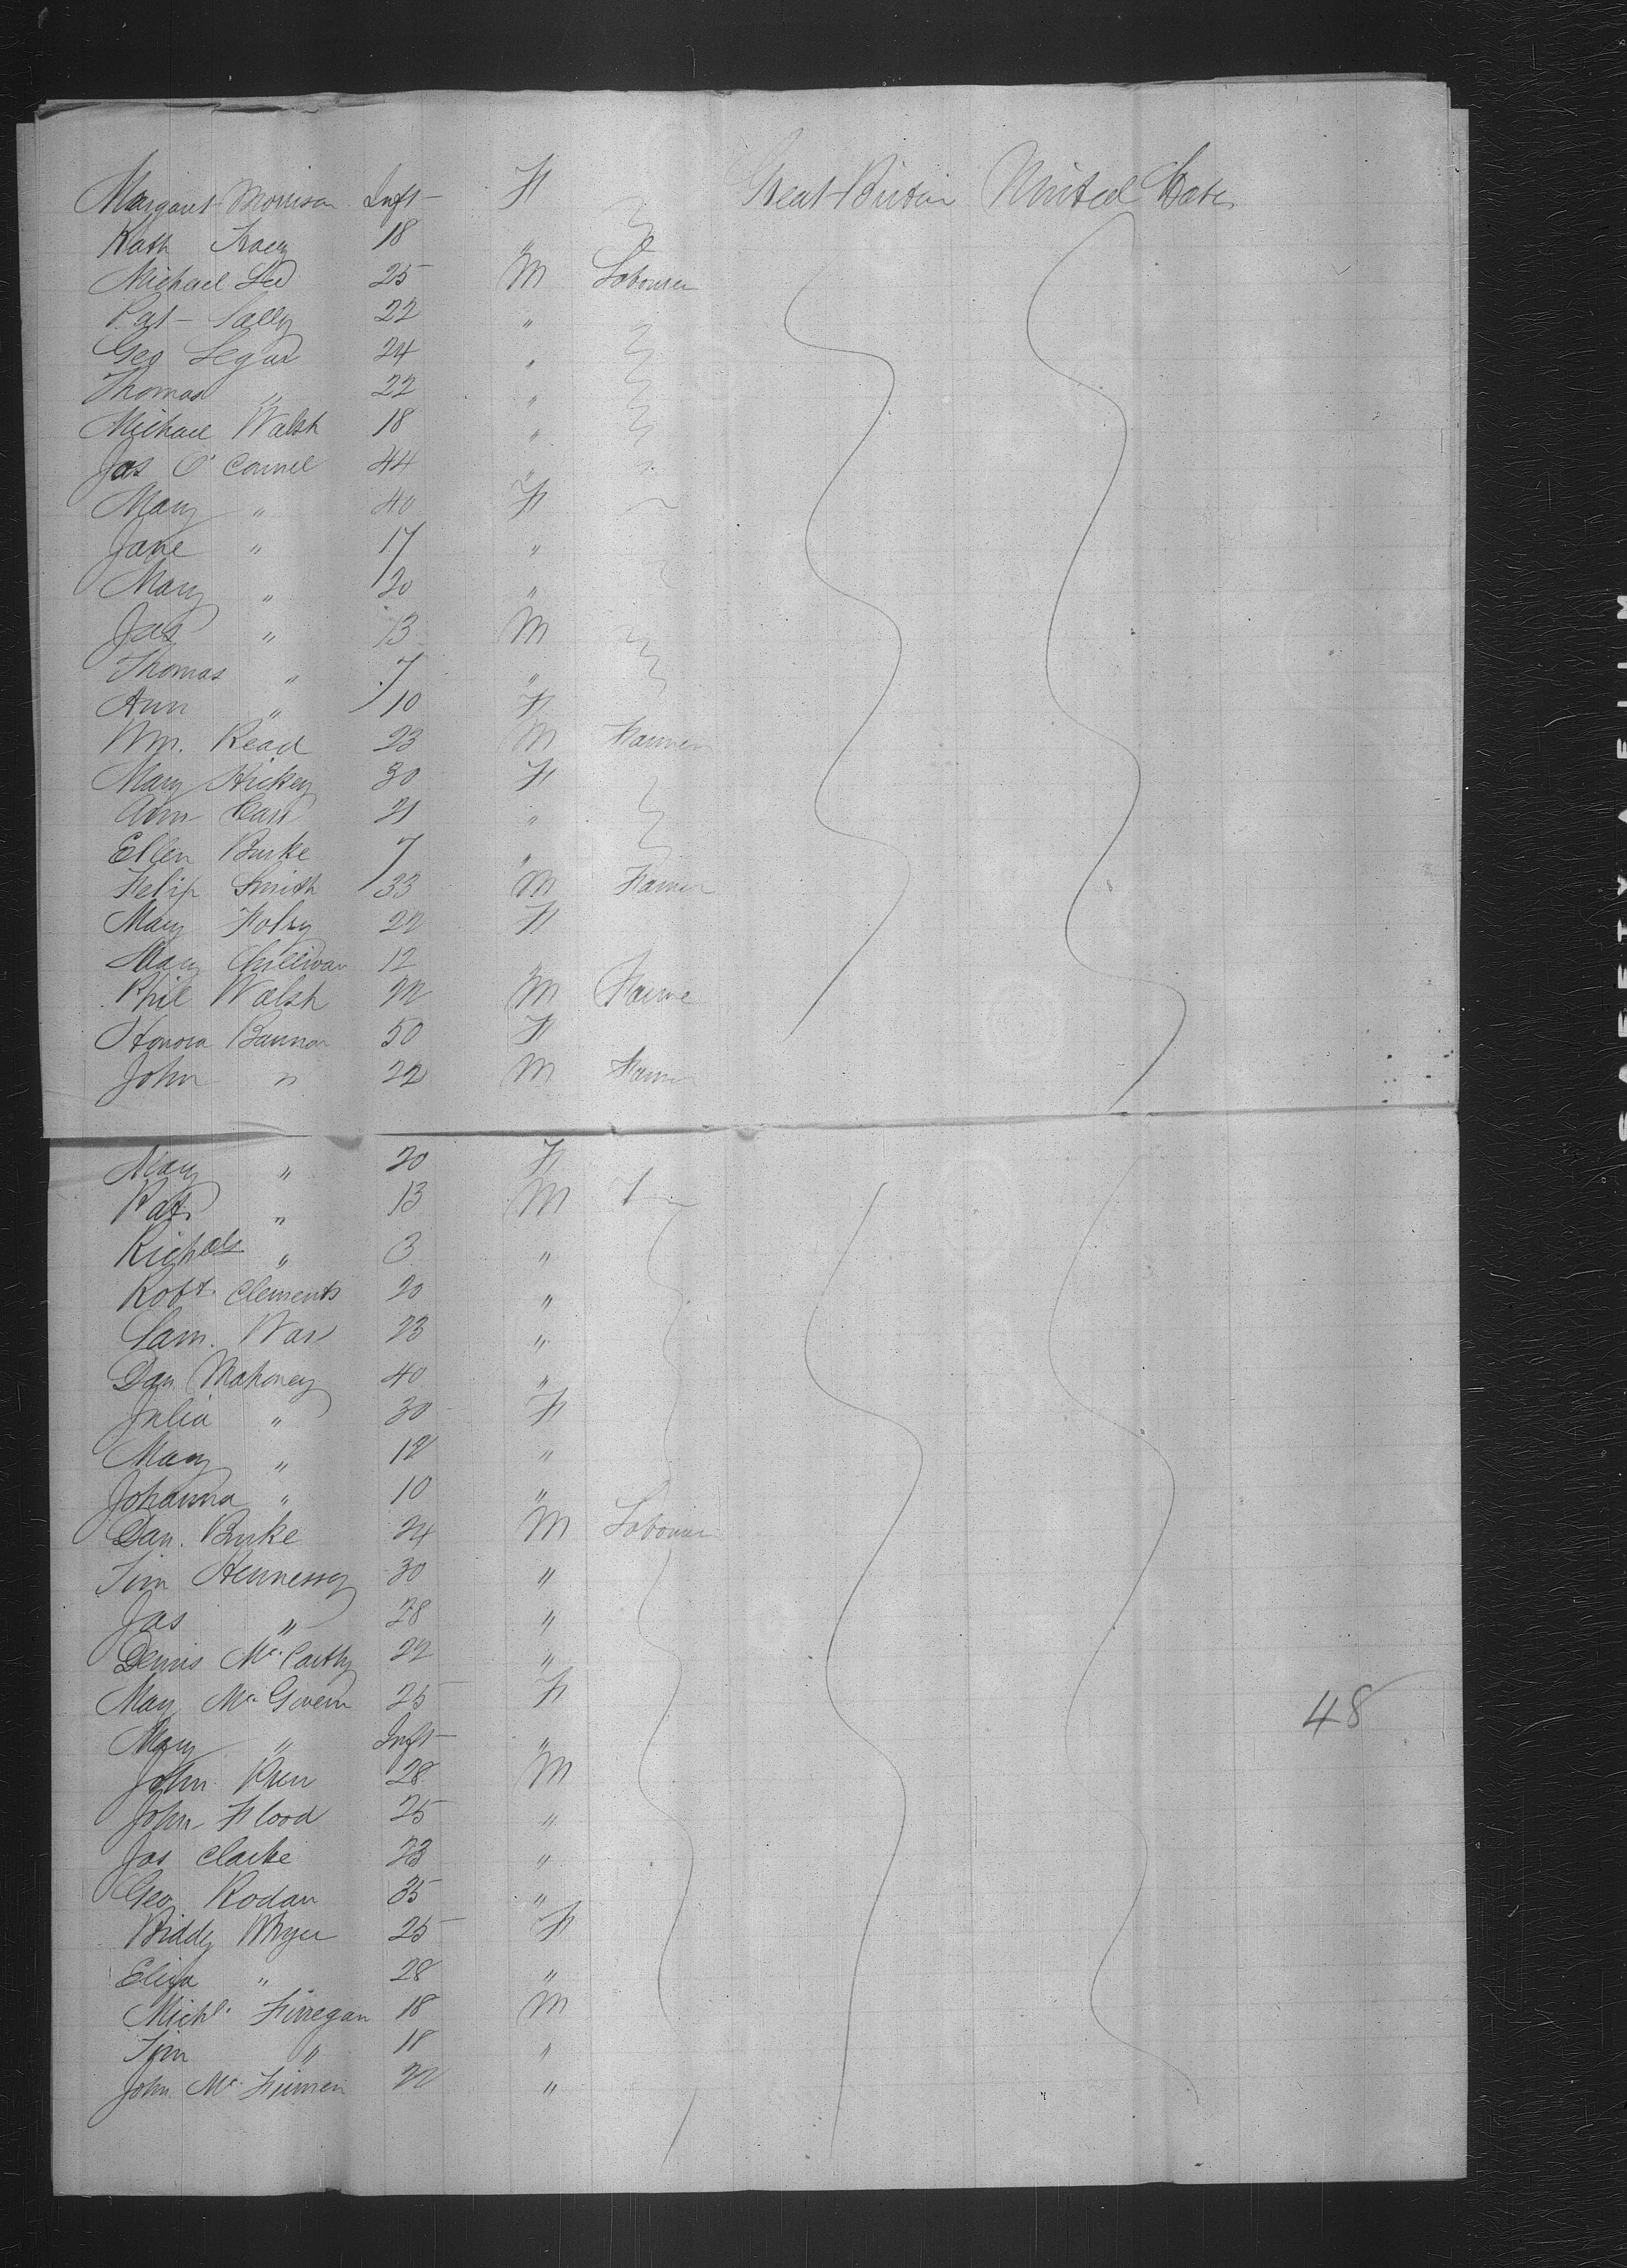 Margaret Morrison Inft F Great Britain United States
Kath Tracy 18 "
Michael Lee 25 M Labourer
Pat Lally 22 "
Geo Segar 24 "
Thomas " 22 "
Michael Walsh 18 "
Jas O'Connel 44 "
Mary " 40 F
Jane " 17 "
Mary " 20 "
Jas " 13 M
Thomas " 7 "
Ann " 10 F
Wm. Read 23 M Farmer
Mary Hickey 30 F
Ann Carr 21 "
Ellen Burke 7 "
Felip Smith 33 M Farmer
Mary Foley 22 F
Mary 12 "
Phil Walsh 22 M Farme
Honora Bannon 50 F
John " 22 M Farmer
Mary " 20 F
Pat " 13 M
Richd " 3 "
Robt. Clements 20 "
Sam. 23 "
Dan Mahoney 40 "
Julia " 30 F
Mary " 12 "
Johanna " 10 "
Dan. Burke 24 M Labourer
Tim Hennessy 30 "
Jas " 28 "
Denis McCarthy 22 "
Mary McGovern 25 F 48
Mary " Inft "
John 28 M
John Flood 25 "
Jas Clarke 23 "
Geo Rodan 35 "
Biddy 25 F
Eliza " 28 "
Michl. Finnegan 18 M
Tim " 18 "
John Mc 22 "
SAFETY FILM